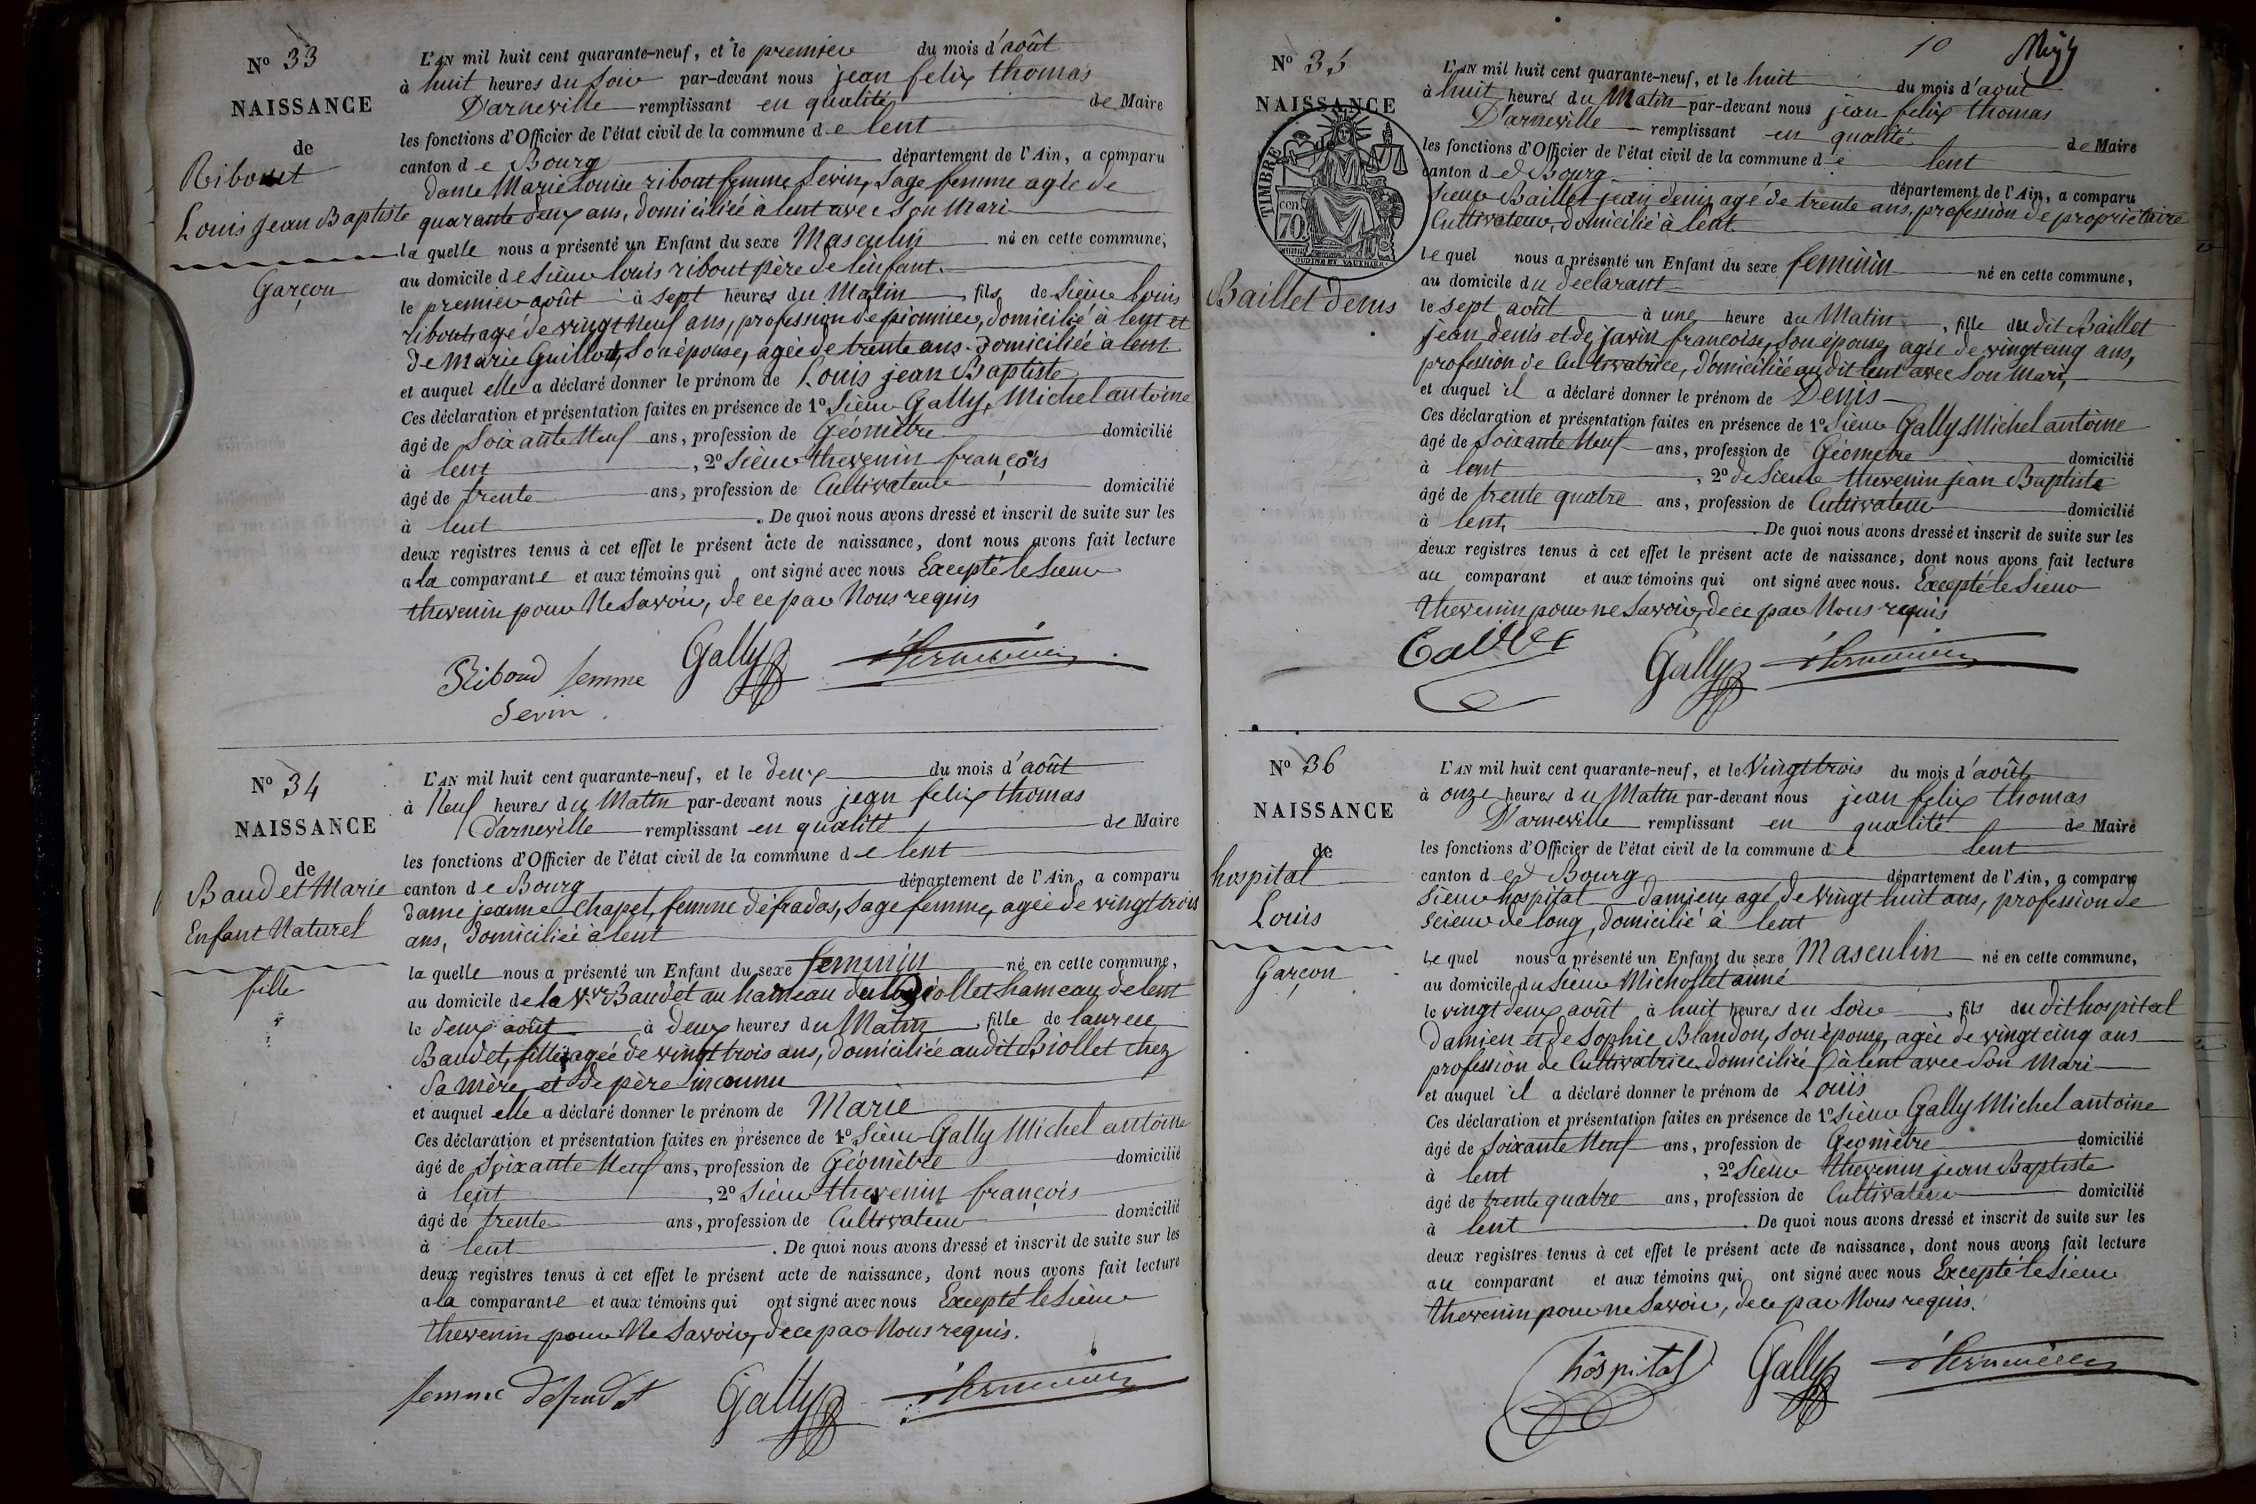 Nº 33
NAISSANCE
de
Ribout
Louis Jean Baptiste
Garçon
L'AN mil huit cent quarante-neuf, et le premier du mois d'août
à huit heures du soir par-devant nous jean felix thomas
D'arneville remplissant en qualité de Maire
les fonctions d'Officier de l'état civil de la commune de lent
canton de Bourg département de l'Ain, a comparu
dame Marie Louise ribout femme Sevin, Sage femme agée de
quarante deux ans, domiciliée à lent avec son Mari
la quelle nous a présenté un Enfant du sexe Masculin né en cette commune,
au domicile de sieur louis ribout père de l'enfant.
le premier août à sept heures du Matin, fils de sieur Louis
ribout, agé de vingt neuf ans, profession de pionnier, domicilié à lent et
de Marie Guillot, son épouse, agée de trente ans. Domiciliée à lent
et auquel elle a déclaré donner le prénom de Louis jean Baptiste
Ces déclaration et présentation faites en présence de 1º Sieur Gally, Michel antoine
âgé de Soixante Neuf ans, profession de Géomètre domicilié
à lent, 2º Sieur thevenin françois
âgé de trente ans, profession de Cultivateur domicilié
à lent. De quoi nous avons dressé et inscrit de suite sur les
deux registres tenus à cet effet le présent acte de naissance, dont nous avons fait lecture
a la comparante et aux témoins qui ont signé avec nous Excepté le Sieur
thevenin pour Ne Savoir, de ce par Nous requis
Riboud femme Gally
Sevin
Nº 34
NAISSANCE
de
Baudet Marie
Enfant Naturel
fille
L'AN mil huit cent quarante-neuf, et le deux du mois d'août
à Neuf heures du Matin par-devant nous jean felix thomas
D'arneville remplissant en qualité de Maire
les fonctions d'Officier de l'état civil de la commune de lent
canton de Bourg département de l'Ain, a comparu
dame jeanne Chapel, femme defradas, Sage femme, agée de vingt trois
ans, domiciliée à lent
la quelle nous a présenté un Enfant du sexe feminin né en cette commune,
au domicile de la Vve Baudet au hameau du Biollet hameau de lent
le deux août à deux heures du Matin, fille de
Baudet, fille agée de vingt trois ans, domiciliée au dit Biollet chez
Sa mère, et de père inconnu
et auquel elle a déclaré donner le prénom de Marie
Ces déclaration et présentation faites en présence de 1º Sieur Gally Michel antoine
âgé de Soixante Neuf ans, profession de Géomètre domicilié
à lent, 2º Sieur thevenin françois
âgé de trente ans, profession de Cultivateur domicilié
à lent. De quoi nous avons dressé et inscrit de suite sur les
deux registres tenus à cet effet le présent acte de naissance, dont nous avons fait lecture
a la comparante et aux témoins qui ont signé avec nous Excepté le Sieur
thevenin pour Ne Savoir, de ce par Nous requis.
femme Gally
10
Nº 35
NAISSANCE
de
TIMBRE
70 cen
Baillet Denis
L'AN mil huit cent quarante-neuf, et le huit du mois d'août
à huit heures du Matin par-devant nous jean felix thomas
D'arneville remplissant en qualité de Maire
les fonctions d'Officier de l'état civil de la commune de lent
canton de Bourg département de l'Ain, a comparu
Sieur Baillet jean denis, agé de trente ans, profession de propriétaire
Cultivateur, domicilié à lent
Lequel nous a présenté un Enfant du sexe feminin né en cette commune,
au domicile du déclarant
le sept août à une heure du Matin, fille du dit Baillet
jean denis et de javin francoise, son épouse, agée de vingt cinq ans,
profession de Cultivatrice, domiciliée au dit lent avec son Mari,
et auquel il a déclaré donner le prénom de Denis
Ces déclaration et présentation faites en présence de 1º Sieur Gally Michel antoine
âgé de Soixante Neuf ans, profession de Géomètre domicilié
à lent, 2º de Sieur thevenin jean Baptiste
âgé de trente quatre ans, profession de Cultivateur domicilié
à lent. De quoi nous avons dressé et inscrit de suite sur les
deux registres tenus à cet effet le présent acte de naissance, dont nous avons fait lecture
au comparant et aux témoins qui ont signé avec nous. Excepté le Sieur
thevenin pour ne Savoir, de ce par Nous requis
Gally
Nº 36
NAISSANCE
de
hospital
Louis
Garçon
L'AN mil huit cent quarante-neuf, et le Vingt trois du mois d'août
à onze heures du Matin par-devant nous jean felix thomas
D'arneville remplissant en qualité de Maire
les fonctions d'Officier de l'état civil de la commune de lent
canton de Bourg département de l'Ain, a comparu
Sieur hospital damien, agé de Vingt huit ans, profession de
scieur de long, domicilié à lent
Lequel nous a présenté un Enfant du sexe Masculin né en cette commune,
au domicile du Sieur Michollet ainé
le vingt deux août à huit heures du Soir, fils du dit hospital
damien et de Sophie Blandon, son épouse, agée de vingt cinq ans
profession de Cultivatrice domiciliée à lent avec son Mari
et auquel il a déclaré donner le prénom de Louis
Ces déclaration et présentation faites en présence de 1º Sieur Gally Michel antoine
âgé de Soixante Neuf ans, profession de Géomètre domicilié
à lent, 2º Sieur thevenin jean Baptiste
âgé de trente quatre ans, profession de Cultivateur domicilié
à lent. De quoi nous avons dressé et inscrit de suite sur les
deux registres tenus à cet effet le présent acte de naissance, dont nous avons fait lecture
au comparant et aux témoins qui ont signé avec nous Excepté le Sieur
thevenin pour ne Savoir, de ce par Nous requis.
hospital Gally